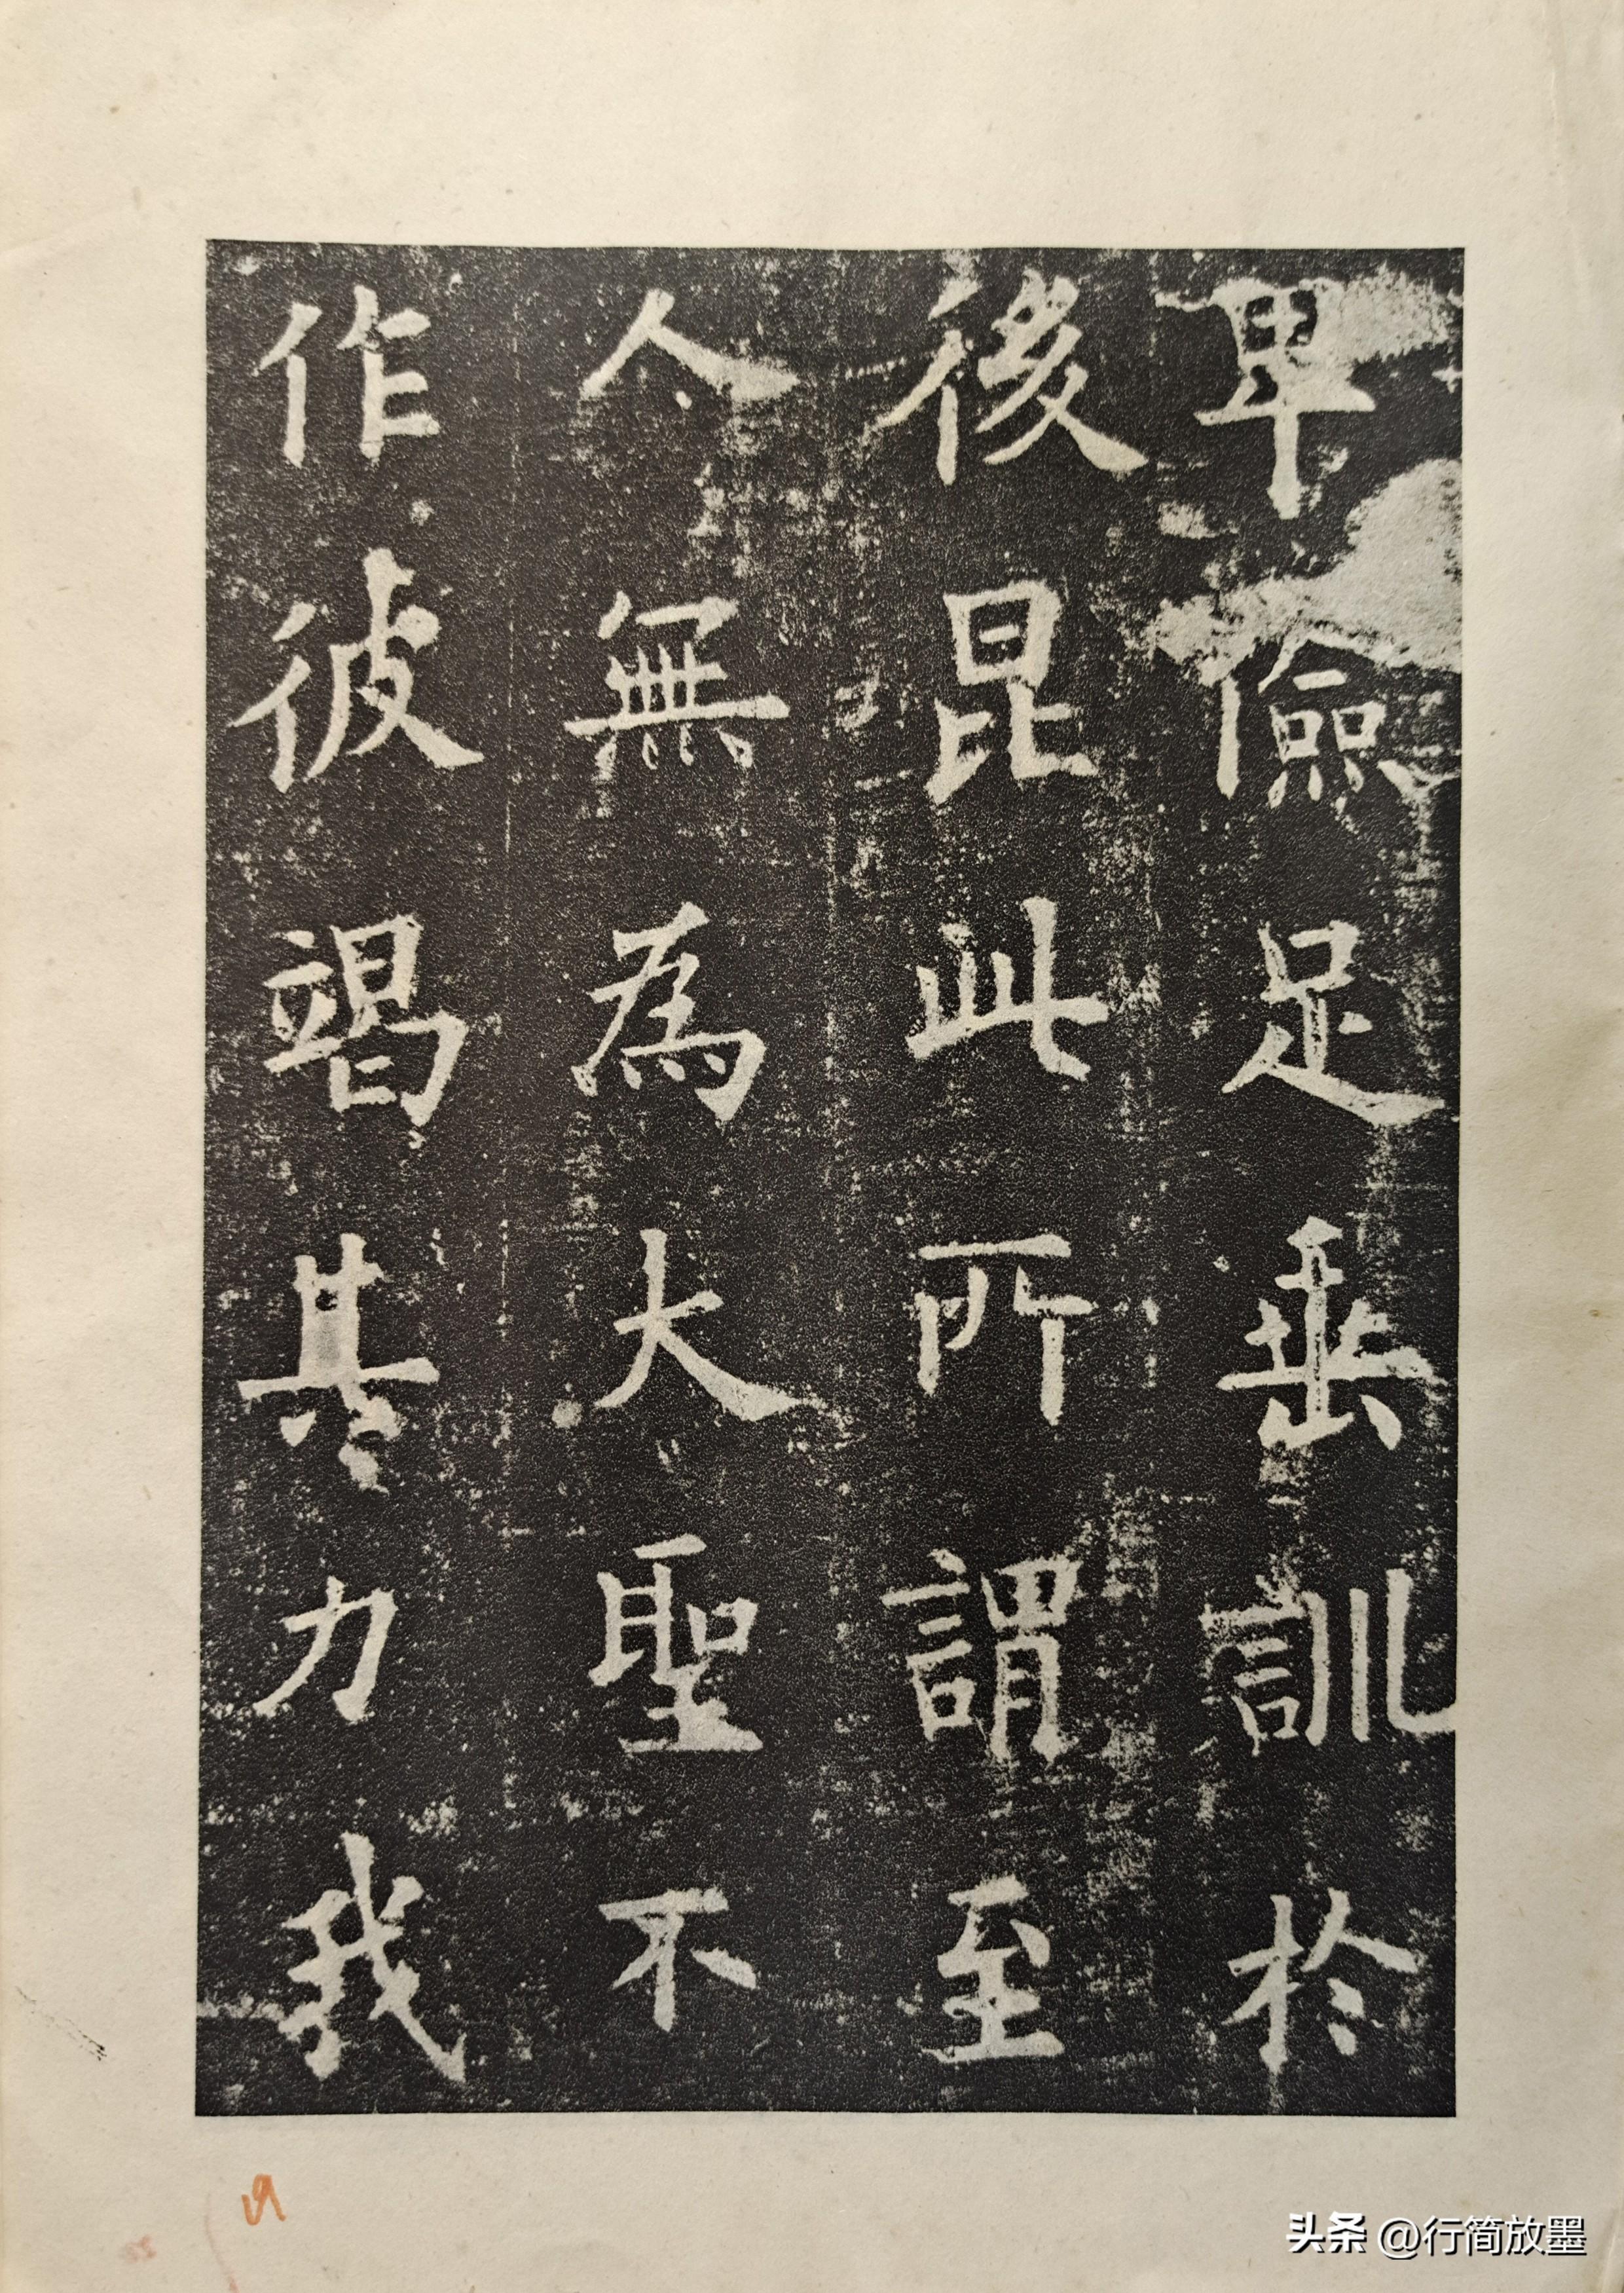 卑儉足垂訓於
後昆此所謂至
人無為大聖不
作彼竭其力我
头条 @行简放墨